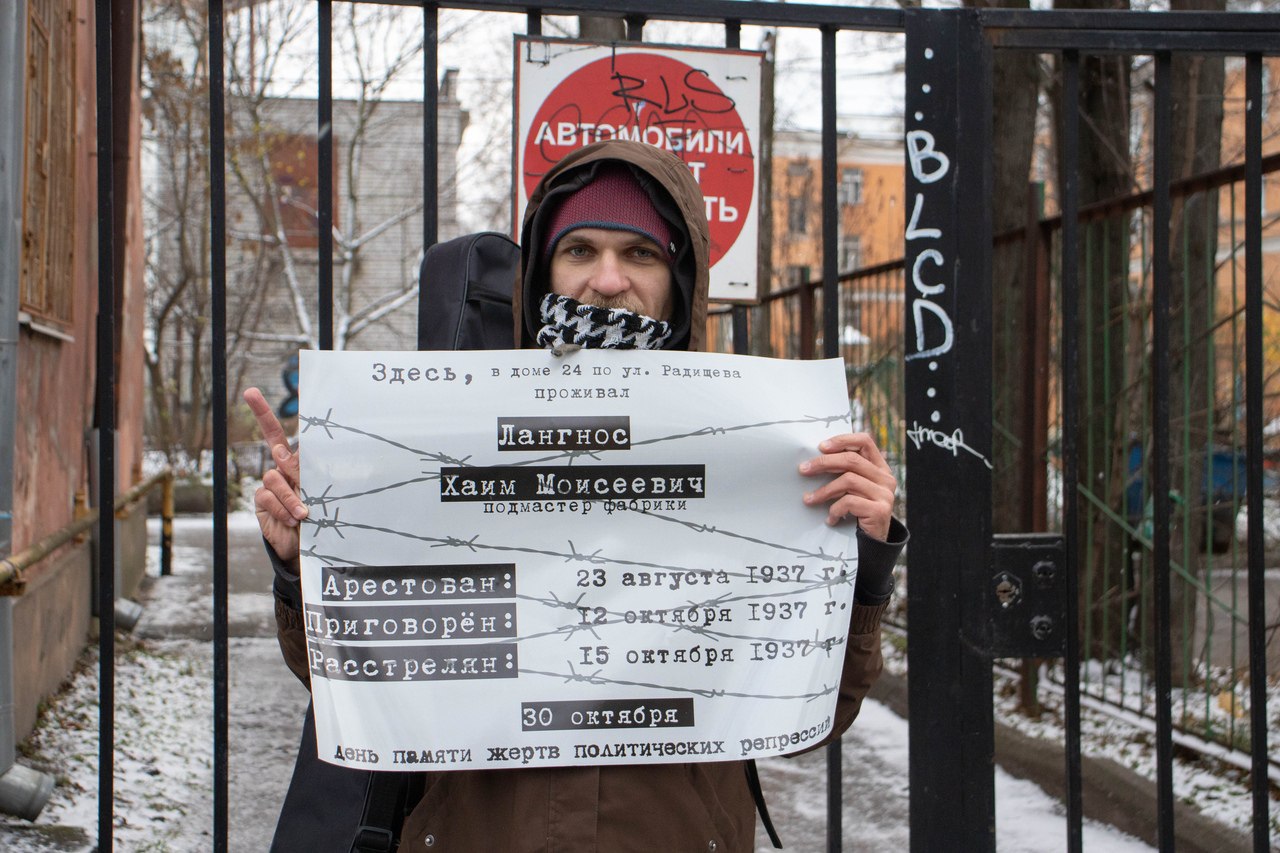 RLS
АВТОМОБИЛИ
BLCD
Здесь, в доме 24 по ул. Радищева
проживал
Лангнос
Хаим Моисеевич
подмастер фабрики
Арестован: 23 августа 1937 г.
Приговорён: 12 октября 1937 г.
Расстрелян: 15 октября 1937 г.
30 октября
День памяти жертв политических репрессий